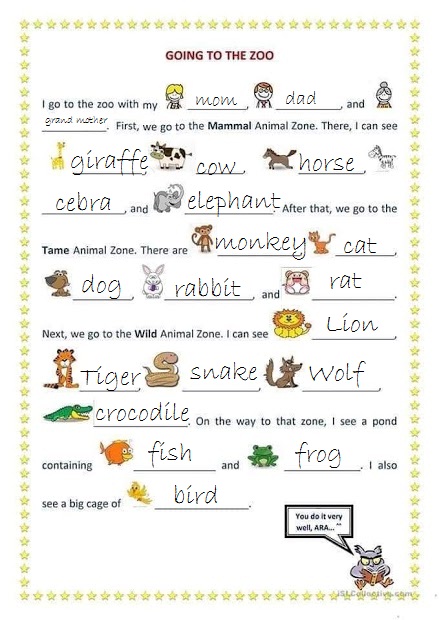 GOING TO THE ZOO
I go to the zoo with my mom, dad, and
grand mother. First, we go to the Mammal Animal Zone. There, I can see
giraffe, cow, horse,
cebra, and elephant. After that, we go to the
Tame Animal Zone. There are monkey, cat,
dog, rabbit, and rat.
Next, we go to the Wild Animal Zone. I can see Lion,
Tiger, snake, Wolf,
crocodile. On the way to that zone, I see a pond
containing fish and frog. I also
see a big cage of bird.
You do it very
well, ARA... ^^
iSLCollective.com